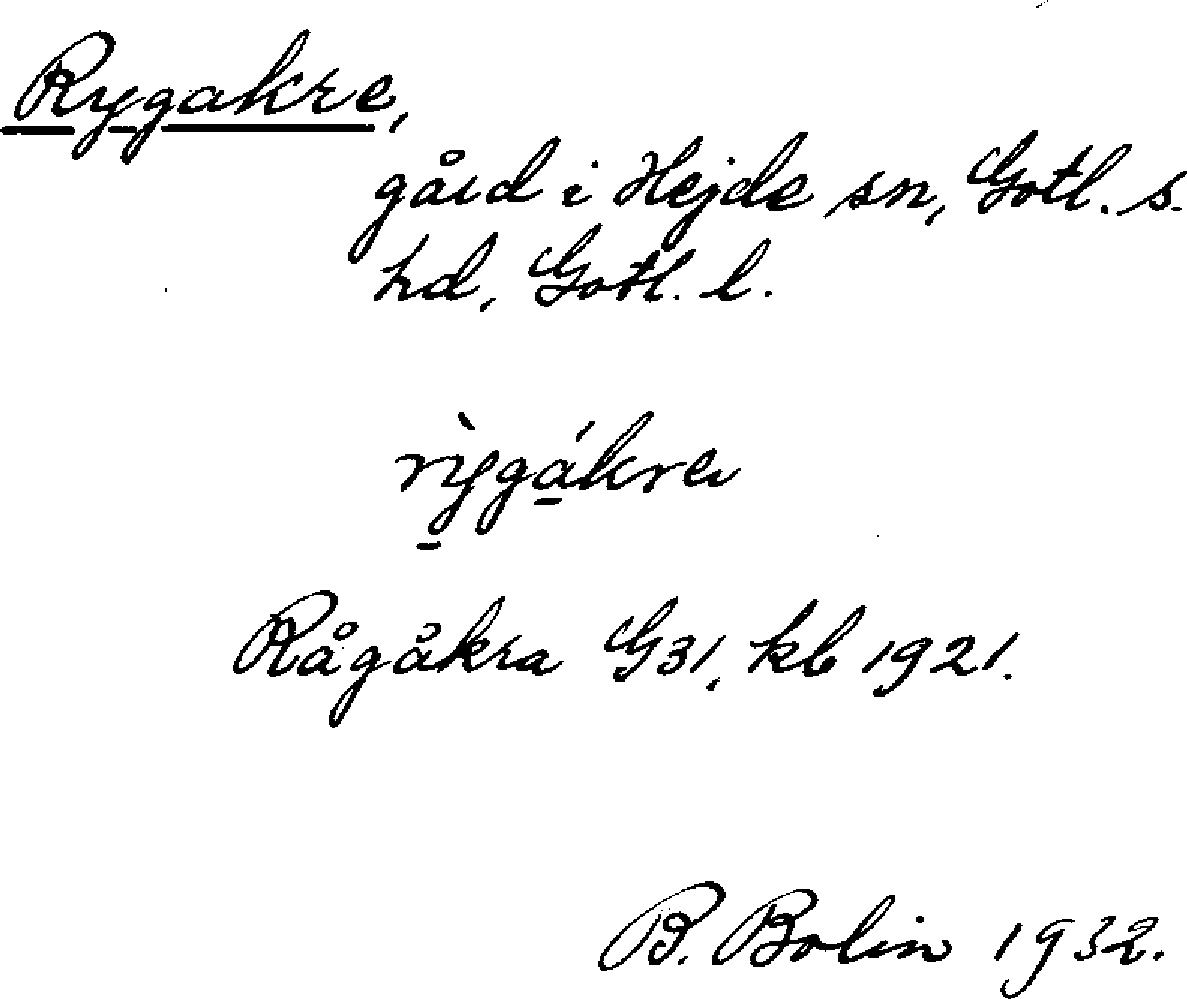 Rygakre,
gård i Hejde sn, Gotl. s.
hd, Gotl. l.
rỳgákre
Rågåkra G31, kb 1921.
B. Bolin 1932.